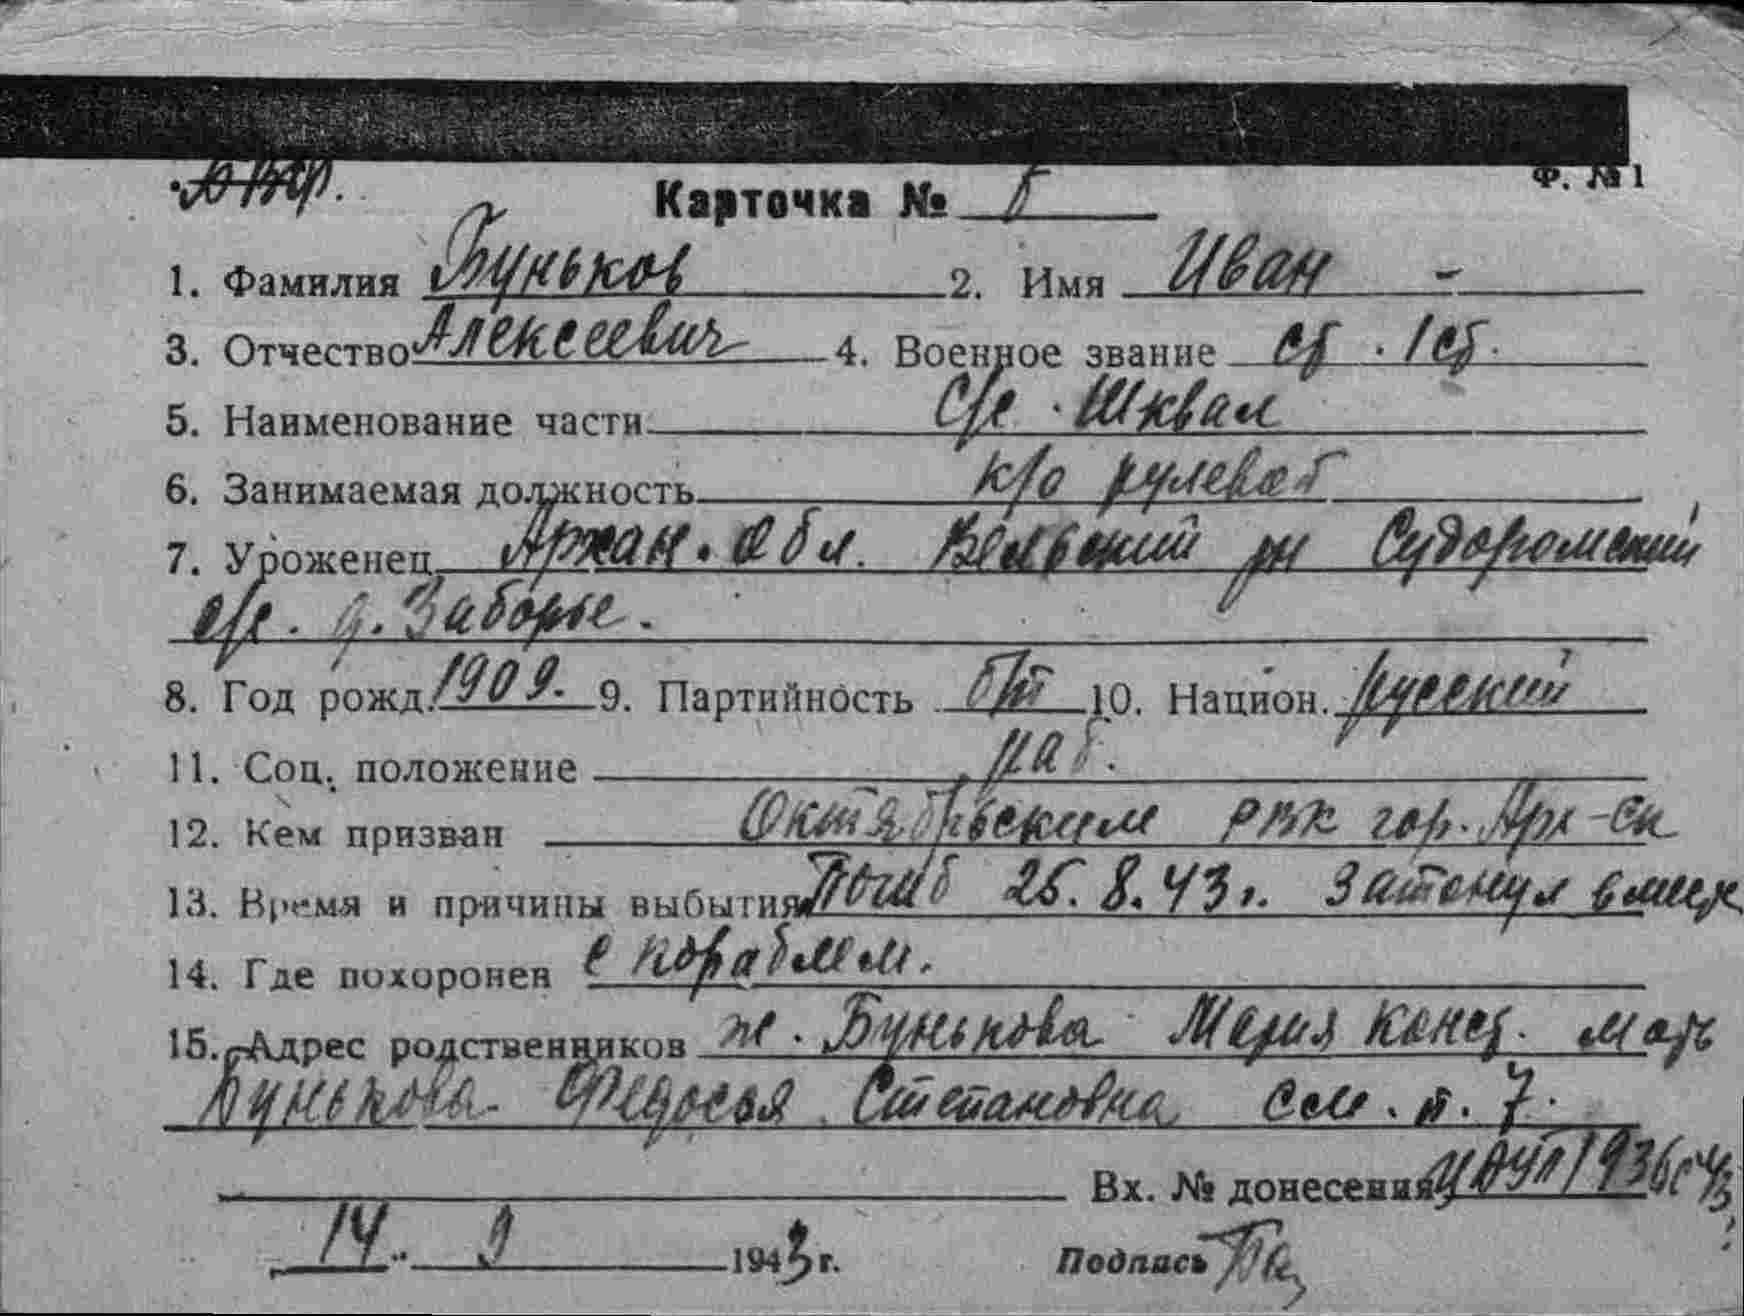 Ф. № 1
Карточка № Б
1. Фамилия Буньков 2. Имя Иван -
3. Отчество Алексеевич 4. Военное звание ст. 1 ст.
5. Наименование части с/к. Шквал
6. Занимаемая должность к/о рулевой
7. Уроженец Архан. обл. Вельский рн Судоромский
с/с. д. Заборье.
8. Год рожд. 1909. 9. Партийность б/п 10. Национ. русский
11. Соц. положение раб.
12. Кем призван Октябрьским РВК гор. Арх-ск
13. Время и причины выбытия Погиб 25.8.43г. Затонул вместе
14. Где похоронен с кораблем.
15. Адрес родственников ж. Бунькова Мария Конст. мать
Бунькова Федосья Степановна см. п. 7.
Вх. № донесения
14. 9 1943 г. Подпись